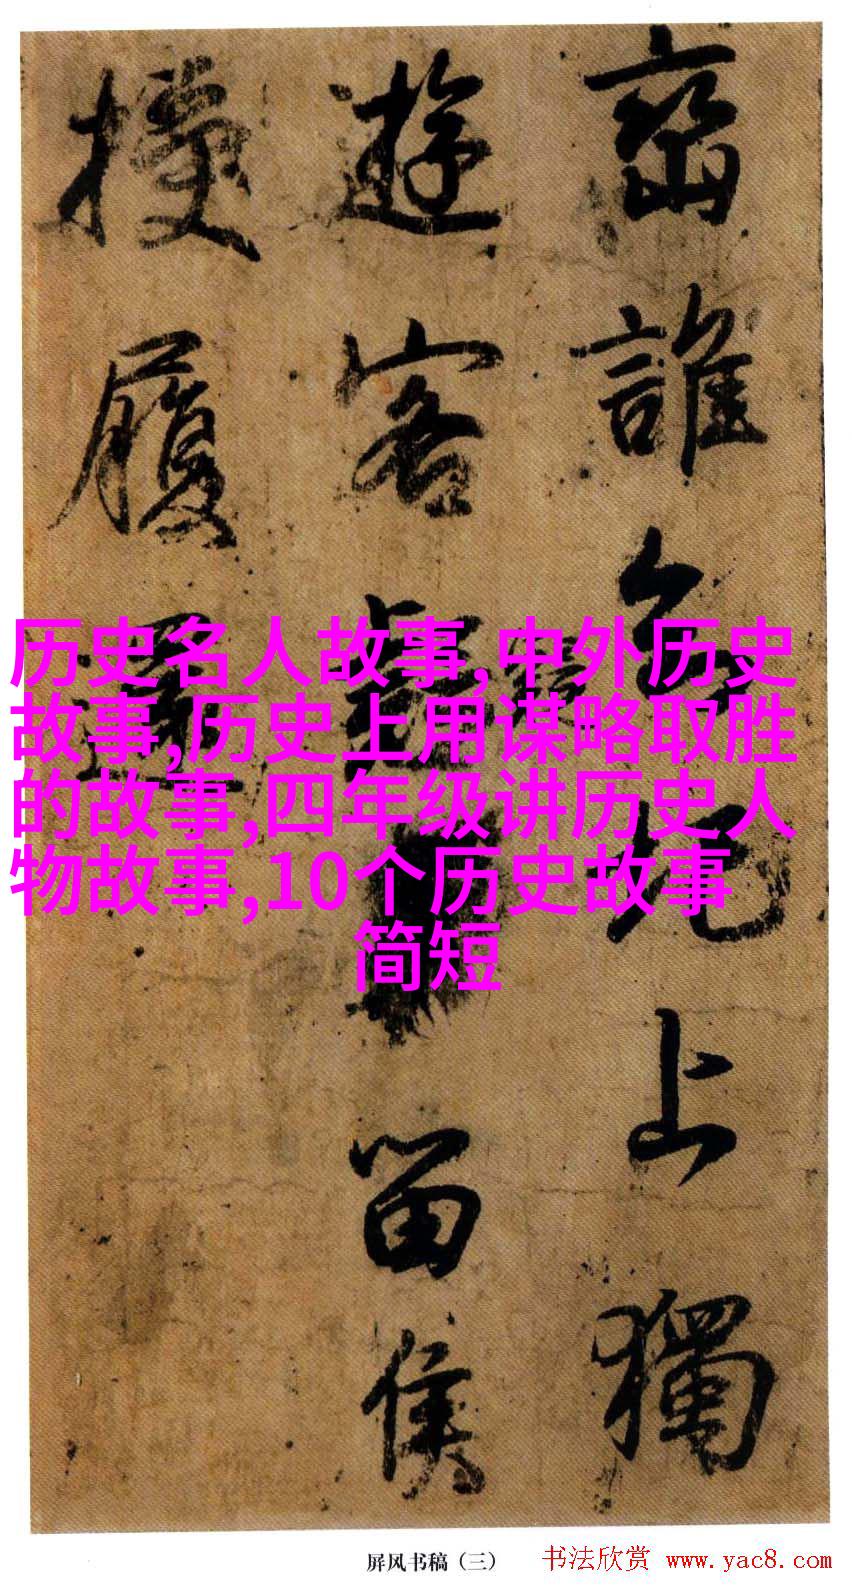 历史名人故事,中外历史
故事,历史上用谋略取胜
的故事,四年级讲历史人
物故事,10个历史故事
简短
崮誰知圯上獨
遊客 留侯
擾履還
屏风书稿（三）
书法欣赏 www.yac8.com